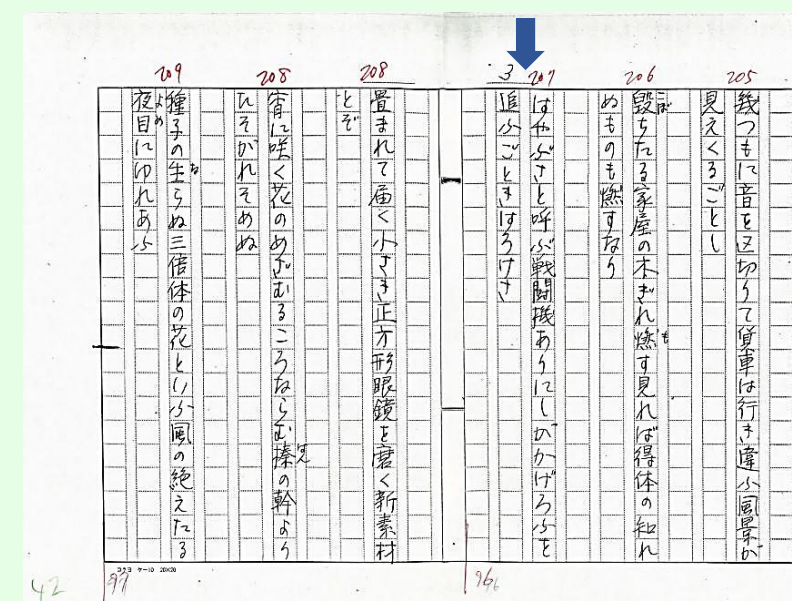 205
幾つもに音を区切りて貨車は行き違ふ風景が
見えくるごとし
206
毀ちたる家屋の木ぎれ燃す見れば得体の知れ
こぼ
も
ぬものも燃すなり
207
3
はやぶさと呼ぶ戦闘機ありにしがかげろふを
追ふごときはろけさ
208
畳まれて届く小さき正方形眼鏡を磨く新素材
とぞ
208
宵に咲く花のめざむるころならむ榛の幹より
はん
たそがれそめぬ
209
種子の生らぬ三倍体の花といふ風の絶えたる
な
夜目にゆれあふ
よめ
96
97
コクヨ ケ-10 20×20
42